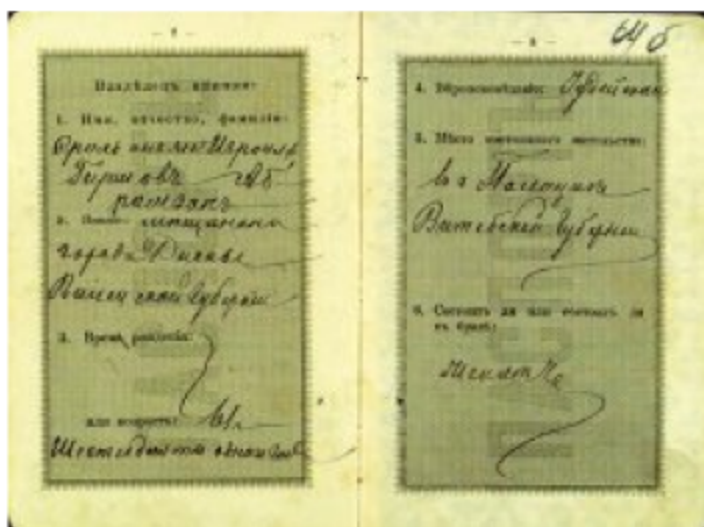 64 б
Владѣлецъ книжки:
1. Имя, отчество, фамилія:
Сроль онъ же Израиль
Гиршовъ Аб
рамсонъ
2. мѣщанинъ
города Дисны
Виленской губерніи
3. Время рожденія:
или возрастъ: 61
Шестьдесятъ одинъ
4. Вѣроисповѣданіе: Іудейское
5. Мѣсто постояннаго жительства:
въ Полоцкѣ
Витебской губерніи
6. Состоитъ ли или состоялъ ли
въ бракѣ:
Женатъ